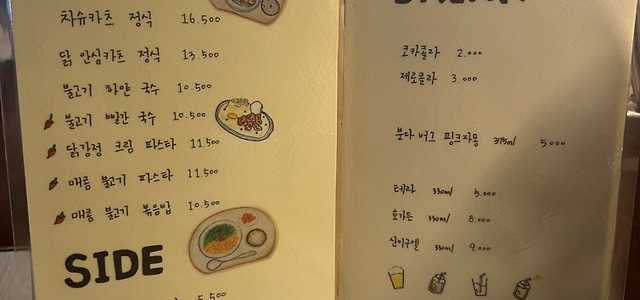 차슈카츠 정식 16.500
닭 안심카츠 정식 13.500
불고기 하얀 국수 10.500
불고기 빨간 국수 10.500
닭강정 크림 파스타 11.500
매콤 불고기 파스타 11.500
매콤 불고기 볶음밥 10.500
SIDE
5.500
코카콜라 2.000
제로콜라 3.000
분다버그 핑크자몽 375ml 5.000
테라 330ml 5.000
호가든 330ml 8.000
330ml 9.000